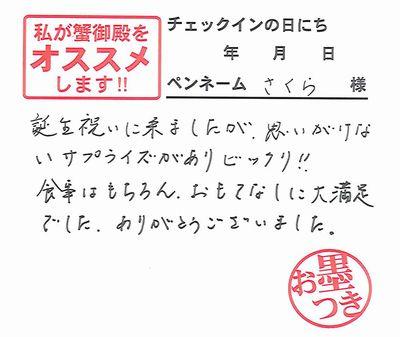 私が蟹御殿を
オススメ
します!!
チェックインの日にち
年 月 日
ペンネーム さくら 様
誕生祝いに来ましたが、思いがけな
いサプライズがありビックリ!!
食事はもちろん、おもてなしに大満足
でした、ありがとうございました。
お墨
つき